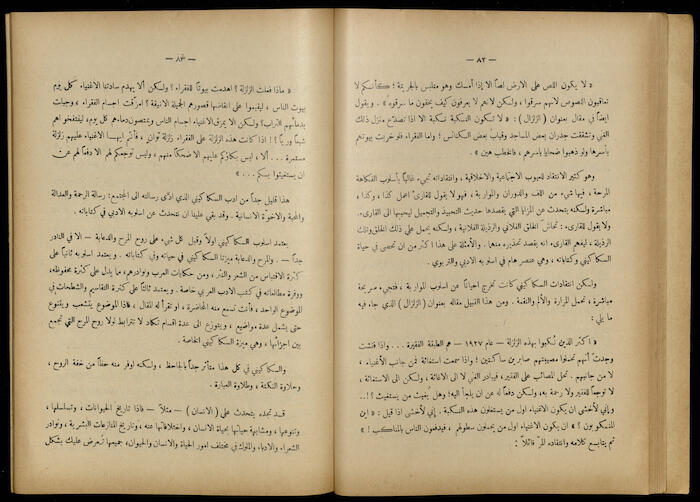 — ٨٢ —
« لا يكون اللص على الارض لصاً الا إذا أمسك وهو متلبس بالجريمة ؛ كأنكم لا
تعاقبون اللصوص لأنهم سرقوا ، ولكن لأنهم لا يعرفون كيف يخفون ما سرقوه » . ويقول
ايضاً في مقال بعنوان ( الزلزال ) : « لا تكون النكبة نكبة الا اذا تصدع منزل ذلك
الغني وتشققت جدران بعض المساجد وقباب بعض الكنائس ؛ واما الفقراء فلو خربت بيوتهم
بأسرها ولو ذهبوا ضحايا بأسرهم ، فالخطب هين »
وهو كثير الانتقاد للعيوب الاجتماعية والاخلاقية ، وانتقاداته تجيء غالباً بأسلوب الفكاهة
المرحة ، فيها شيء من اللف والدوران والمواربة ، فهو لا يقول للقارىء اعمل كذا ، وكذا ،
مباشرة ولكنه يتحدث عن المزايا التي يقصدها حديث التحبيذ والتجميل ليحببها الى القارىء
ولا يقول للقارىء : تحاش الخلق الفلاني والرذيلة الفلانية ، ولكنه يحمل على ذلك الخلق وتلك
الرذيلة ، ليفهم القارىء انه يقصد تحذيره منها . والأمثلة على هذا اكثر من ان تحصى في حياة
السكاكيني وكتاباته ، وهي عنصر هام في اسلوبه الادبي والتربوي .
ولكن انتقادات السكاكيني كانت تخرج احياناً عن اسلوب المواربة ، فتجيء صريحة
مباشرة ، تحمل المرارة والألم والنقمة . ومن هذا القبيل مقاله بعنوان ( الزلزال ) الذي جاء فيه
ما يلي :
« اكثر الذين نكبوا بهذه الزلزلة — عام ١٩٢٧ — هم الطبقة الفقيرة ... واذا فتشت
وجدت أنهم تحملوا مصيبتهم صابرين ساكتين ؛ واذا سمعت استغاثة فمن جانب الأغنياء ،
لا من جانبهم . تحمل المصائب على الفقير ، فيبادر الغني لا الى الاغاثة ، ولكن الى الاستغاثة ،
لا توجعاً للفقير ولا رحمة به ، ولكن دفعاً له عن ان يلجأ اليه؛ وهل بقيت من يستغيث ؟ ! ..
وإني لأخشى ان يكون الاغنياء اول من يستغلون هذه النكبة . إني لأخشى اذا قيل : « اين
المنكوبون ؟ » ان يكون الاغنياء اول من يحملون سطولهم ، فيدفعون الناس بالمناكب ! »
ثم يتابع كلامه وانتقاده المر قائلاً :
— ٨٣ —
« ماذا فعلت الزلزلة ؟ اهدمت بيوتاً للفقراء ؟ ولكن ألا يهدم سادتنا الاغنياء كل يوم
بيوت الناس ، ليقيموا على انقاضها قصورهم الجميلة الانيقة ؟ امزقت اجسام الفقراء ، وجبلت
بدمائهم التراب؟ ولكن ألا يمزق الاغنياء اجسام الناس ويمتصون دماءهم كل يوم ، لينتفخوا هم
شبعاً وريّاً ؟ ! اذا كانت هذه الزلزلة على الفقراء زلزلة ثوانٍ ، فأنتم ايها الاغنياء عليهم زلزلة
مستمرة ... ألا ، ليس بكاؤكم عليهم الا ضحكاً منهم ، وليس توجعكم لهم الا دفعاً لهم عن
ان يستغيثوا بكم ... »
هذا قليل جداً من ادب السكاكيني الذي ادى رسالته الى المجتمع : رسالة الرحمة والعدالة
والمحبة والاخوة الانسانية . وقد بقي علينا ان نتحدث عن اسلوبه الادبي في كتاباته .
يعتمد اسلوب السكاكيني اولاً وقبل كل شيء على روح المرح والدعابة — الا في النادر
جداً — . والمرح والدعابة ميزتا السكاكيني في حياته وفي كتاباته . ويعتمد اسلوبه ثانياً على
كثرة الاقتباس من الشعر والنثر ، ومن حكايات العرب ونوادرهم، ما يدل على كثرة محفوظه،
ووفرة مطالعاته في كتب الادب العربي خاصة . ويعتمد ثالثاً على كثرة التقاسيم والشطحات في
الموضوع الواحد ، فأنت تسمع منه المحاضرة ، او تقرأ له المقال ، فاذا الموضوع يتشعب ويتنوع
حتى يشمل عدة مواضيع ، ويتوزع الى عدة اقسام تكاد لا تترابط لولا روح المرح التي تجمع
بين اجزائها ، وهي ميزة السكاكيني الخاصة .
والسكاكيني في كل هذا متأثر جداً بالجاحظ ، ولكنه اوفر منه حظاً من خفة الروح ،
وحلاوة النكتة ، وطلاوة العبارة .
قد تجده يتحدث على ( الانسان ) — مثلاً — فاذا تاريخ الحيوانات ، وتسلسلها ،
وتنوعها ، ومشابهة حياتها بحياة الانسان ، واختلافاتها عنه ، وتاريخ المنازعات البشرية ، ونوادر
الشعراء والادباء والملوك في مختلف امور الحياة والانسان والحيوان؛ جميعها تُعرض عليك بشكل